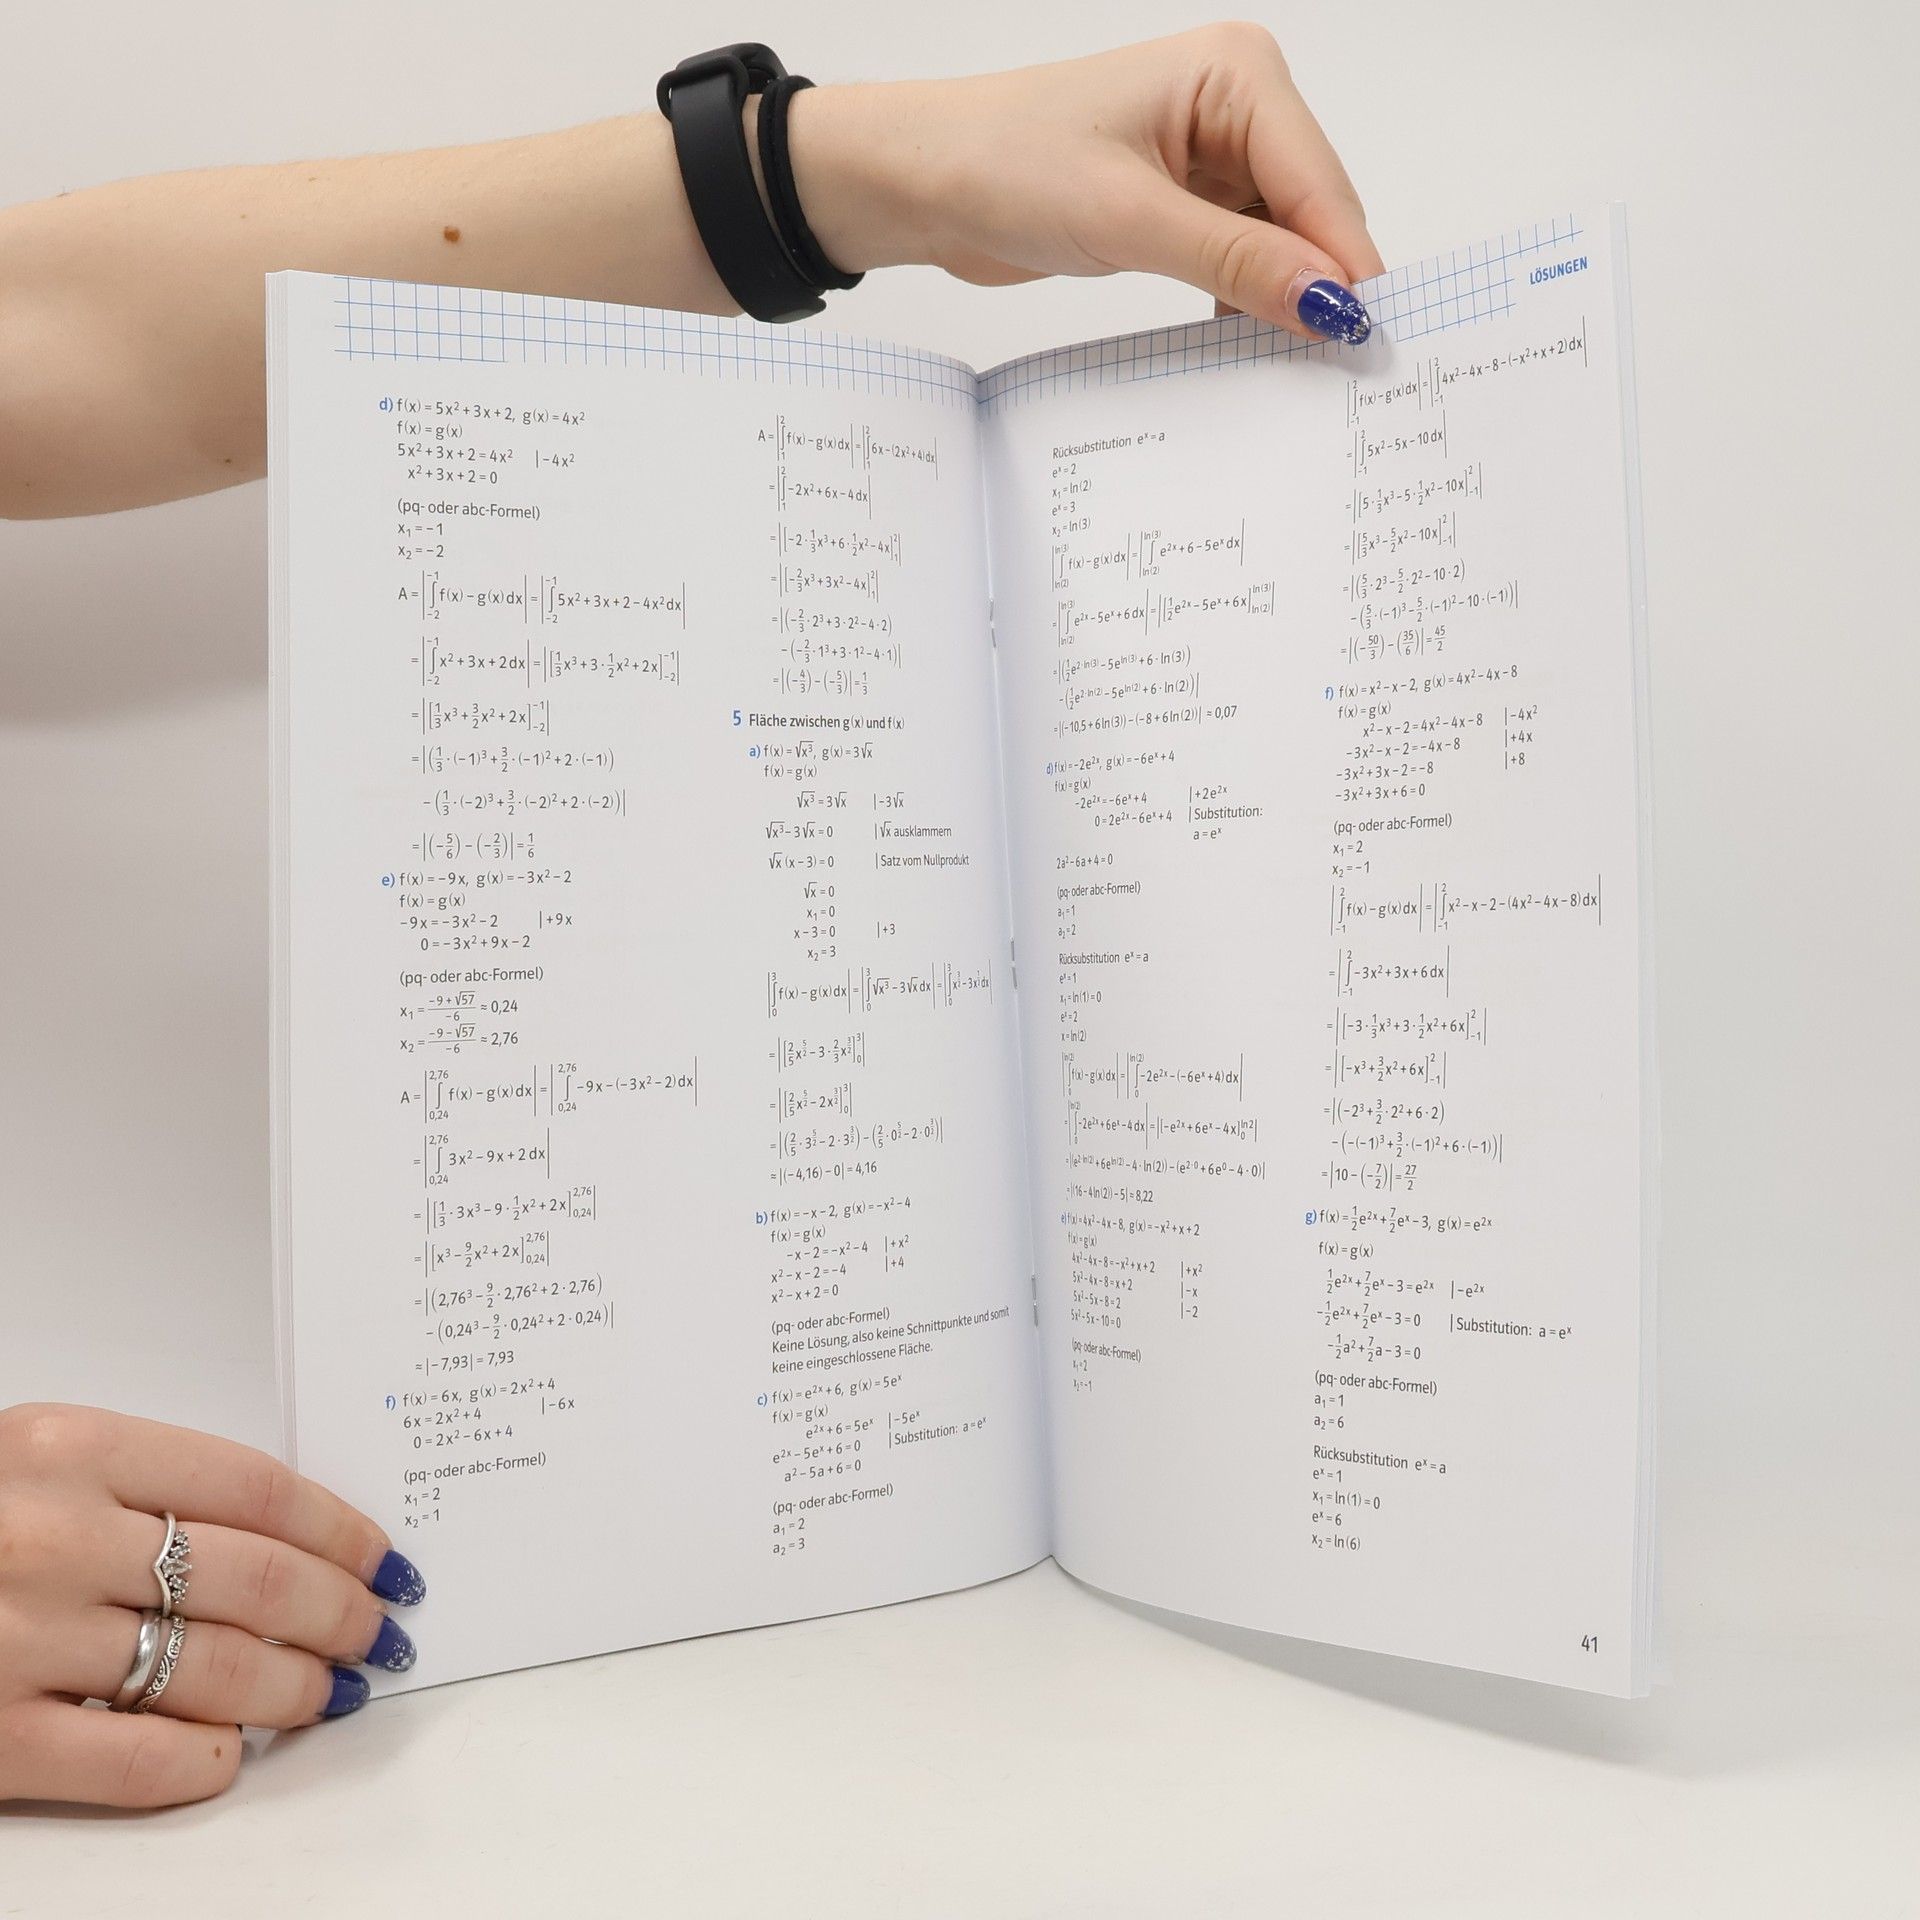 d) f(x) = 5x² + 3x + 2, g(x) = 4x²
f(x) = g(x)
5x² + 3x + 2 = 4x² | −4x²
x² + 3x + 2 = 0
(pq- oder abc-Formel)
x₁ = −1
x₂ = −2
A = |∫₋₂⁻¹ f(x) − g(x) dx| = |∫₋₂⁻¹ 5x² + 3x + 2 − 4x² dx|
= |∫₋₂⁻¹ x² + 3x + 2 dx| = |[1/3 x³ + 3 · 1/2 x² + 2x]₋₂⁻¹|
= |[1/3 x³ + 3/2 x² + 2x]₋₂⁻¹|
= |(1/3 · (−1)³ + 3/2 · (−1)² + 2 · (−1))
− (1/3 · (−2)³ + 3/2 · (−2)² + 2 · (−2))|
= |(−5/6) − (−2/3)| = 1/6
e) f(x) = −9x, g(x) = −3x² − 2
f(x) = g(x)
−9x = −3x² − 2 | +9x
0 = −3x² + 9x − 2
(pq- oder abc-Formel)
x₁ = (−9 + √57)/−6 ≈ 0,24
x₂ = (−9 − √57)/−6 ≈ 2,76
A = |∫_{0,24}^{2,76} f(x) − g(x) dx| = |∫_{0,24}^{2,76} −9x − (−3x² − 2) dx|
= |∫_{0,24}^{2,76} 3x² − 9x + 2 dx|
= |[1/3 · 3x³ − 9 · 1/2 x² + 2x]_{0,24}^{2,76}|
= |[x³ − 9/2 x² + 2x]_{0,24}^{2,76}|
= |(2,76³ − 9/2 · 2,76² + 2 · 2,76)
− (0,24³ − 9/2 · 0,24² + 2 · 0,24)|
≈ |−7,93| = 7,93
f) f(x) = 6x, g(x) = 2x² + 4
6x = 2x² + 4 | −6x
0 = 2x² − 6x + 4
(pq- oder abc-Formel)
x₁ = 2
x₂ = 1
A = |∫₁² f(x) − g(x) dx| = |∫₁² 6x − (2x² + 4) dx|
= |∫₁² −2x² + 6x − 4 dx|
= |[−2 · 1/3 x³ + 6 · 1/2 x² − 4x]₁²|
= |[−2/3 x³ + 3x² − 4x]₁²|
= |(−2/3 · 2³ + 3 · 2² − 4 · 2)
− (−2/3 · 1³ + 3 · 1² − 4 · 1)|
= |(−4/3) − (−5/3)| = 1/3
5 Fläche zwischen g(x) und f(x)
a) f(x) = √x³, g(x) = 3√x
f(x) = g(x)
√x³ = 3√x | −3√x
√x³ − 3√x = 0 | √x ausklammern
√x (x − 3) = 0 | Satz vom Nullprodukt
√x = 0
x₁ = 0
x − 3 = 0 | +3
x₂ = 3
|∫₀³ f(x) − g(x) dx| = |∫₀³ √x³ − 3√x dx| = |∫₀³ x^{3/2} − 3x^{1/2} dx|
= |[2/5 x^{5/2} − 3 · 2/3 x^{3/2}]₀³|
= |[2/5 x^{5/2} − 2x^{3/2}]₀³|
= |(2/5 · 3^{5/2} − 2 · 3^{3/2}) − (2/5 · 0^{5/2} − 2 · 0^{3/2})|
≈ |(−4,16) − 0| = 4,16
b) f(x) = −x − 2, g(x) = −x² − 4
f(x) = g(x)
−x − 2 = −x² − 4 | +x²
x² − x − 2 = −4 | +4
x² − x + 2 = 0
(pq- oder abc-Formel)
Keine Lösung, also keine Schnittpunkte und somit
keine eingeschlossene Fläche.
c) f(x) = e²ˣ + 6, g(x) = 5eˣ
f(x) = g(x)
e²ˣ + 6 = 5eˣ | −5eˣ
e²ˣ − 5eˣ + 6 = 0 | Substitution: a = eˣ
a² − 5a + 6 = 0
(pq- oder abc-Formel)
a₁ = 2
a₂ = 3
LÖSUNGEN
Rücksubstitution eˣ = a
eˣ = 2
x₁ = ln(2)
eˣ = 3
x₂ = ln(3)
|∫_{ln(2)}^{ln(3)} f(x) − g(x) dx| = |∫_{ln(2)}^{ln(3)} e²ˣ + 6 − 5eˣ dx|
= |∫_{ln(2)}^{ln(3)} e²ˣ − 5eˣ + 6 dx| = |[1/2 e²ˣ − 5eˣ + 6x]_{ln(2)}^{ln(3)}|
= |(1/2 e^{2·ln(3)} − 5e^{ln(3)} + 6 · ln(3))
− (1/2 e^{2·ln(2)} − 5e^{ln(2)} + 6 · ln(2))|
= |(−10,5 + 6ln(3)) − (−8 + 6ln(2))| ≈ 0,07
d) f(x) = −2e²ˣ, g(x) = −6eˣ + 4
f(x) = g(x)
−2e²ˣ = −6eˣ + 4 | +2e²ˣ
0 = 2e²ˣ − 6eˣ + 4 | Substitution:
a = eˣ
2a² − 6a + 4 = 0
(pq- oder abc-Formel)
a₁ = 1
a₂ = 2
Rücksubstitution eˣ = a
eˣ = 1
x₁ = ln(1) = 0
eˣ = 2
x = ln(2)
|∫₀^{ln(2)} f(x) − g(x) dx| = |∫₀^{ln(2)} −2e²ˣ − (−6eˣ + 4) dx|
= |∫₀^{ln(2)} −2e²ˣ + 6eˣ − 4 dx| = |[−e²ˣ + 6eˣ − 4x]₀^{ln2}|
= |(e^{2·ln(2)} + 6e^{ln(2)} − 4 · ln(2)) − (e^{2·0} + 6e⁰ − 4 · 0)|
= |(16 − 4ln(2)) − 5| ≈ 8,22
e) f(x) = 4x² − 4x − 8, g(x) = −x² + x + 2
f(x) = g(x)
4x² − 4x − 8 = −x² + x + 2 | +x²
5x² − 4x − 8 = x + 2 | −x
5x² − 5x − 8 = 2 | −2
5x² − 5x − 10 = 0
(pq- oder abc-Formel)
x₁ = 2
x₂ = −1
|∫₋₁² f(x) − g(x) dx| = |∫₋₁² 4x² − 4x − 8 − (−x² + x + 2) dx|
= |∫₋₁² 5x² − 5x − 10 dx|
= |[5 · 1/3 x³ − 5 · 1/2 x² − 10x]₋₁²|
= |[5/3 x³ − 5/2 x² − 10x]₋₁²|
= |(5/3 · 2³ − 5/2 · 2² − 10 · 2)
− (5/3 · (−1)³ − 5/2 · (−1)² − 10 · (−1))|
= |(−50/3) − (35/6)| = 45/2
f) f(x) = x² − x − 2, g(x) = 4x² − 4x − 8
f(x) = g(x)
x² − x − 2 = 4x² − 4x − 8 | −4x²
−3x² − x − 2 = −4x − 8 | +4x
−3x² + 3x − 2 = −8 | +8
−3x² + 3x + 6 = 0
(pq- oder abc-Formel)
x₁ = 2
x₂ = −1
|∫₋₁² f(x) − g(x) dx| = |∫₋₁² x² − x − 2 − (4x² − 4x − 8) dx|
= |∫₋₁² −3x² + 3x + 6 dx|
= |[−3 · 1/3 x³ + 3 · 1/2 x² + 6x]₋₁²|
= |[−x³ + 3/2 x² + 6x]₋₁²|
= |(−2³ + 3/2 · 2² + 6 · 2)
− (−(−1)³ + 3/2 · (−1)² + 6 · (−1))|
= |10 − (−7/2)| = 27/2
g) f(x) = 1/2 e²ˣ + 7/2 eˣ − 3, g(x) = e²ˣ
f(x) = g(x)
1/2 e²ˣ + 7/2 eˣ − 3 = e²ˣ | −e²ˣ
−1/2 e²ˣ + 7/2 eˣ − 3 = 0 | Substitution: a = eˣ
−1/2 a² + 7/2 a − 3 = 0
(pq- oder abc-Formel)
a₁ = 1
a₂ = 6
Rücksubstitution eˣ = a
eˣ = 1
x₁ = ln(1) = 0
eˣ = 6
x₂ = ln(6)
41